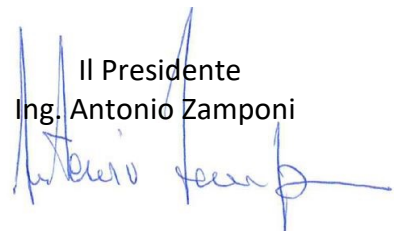 Il Presidente
Ing. Antonio Zamponi
Antonio Zamponi